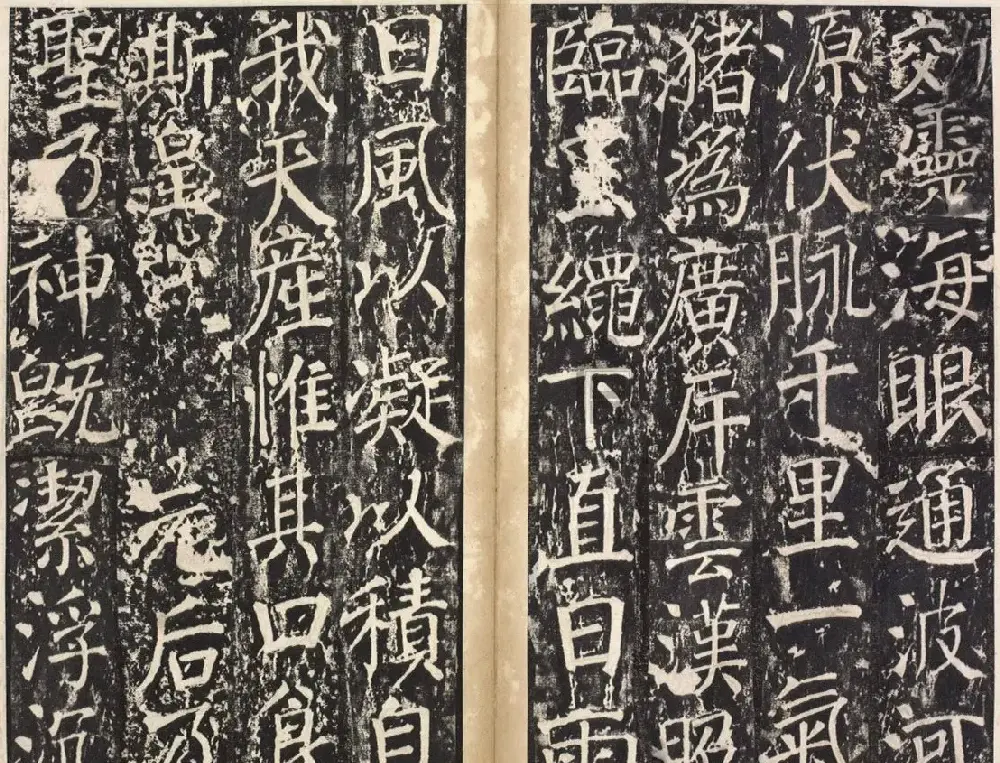 靈海眼通波河
源伏脉千里一氣
猪為廣岸雲漢昭
臨繩下直曰雨
曰風以凝以積自
我天產惟其口食
斯皇元后乃
聖乃神既潔浮